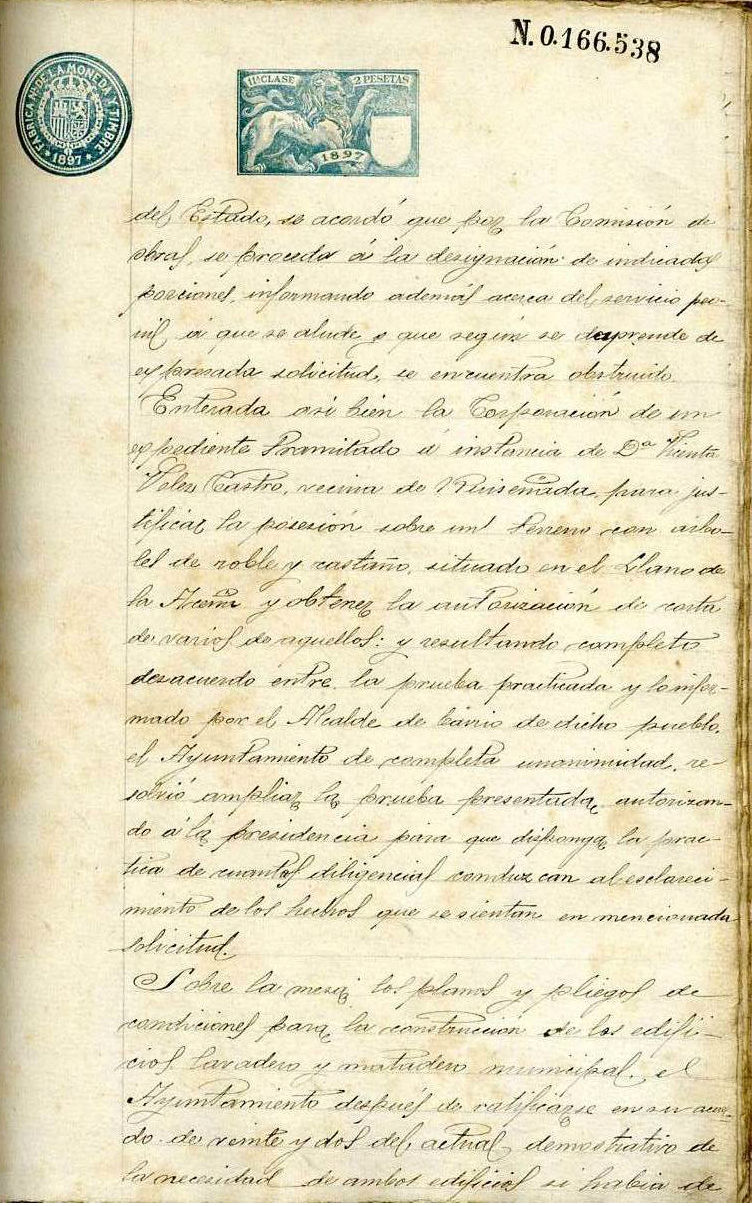 N. 0.166.538
FÁBRICA N. DE LA MONEDA Y TIMBRE
* 1897 *
11ª CLASE 2 PESETAS
1897
del Estado, se acordó que por la Comisión de
obras, se proceda á la designación de indicadas
porciones, informando además acerca del servicio peo-
nil á que se alude, y que según se desprende de
expresada solicitud, se encuentra obstruido.
Enterada asi bien la Corporación de un
expediente tramitado á instancia de Dª Vicenta
Velez Castro, vecina de Ruiseñada, para jus-
tificar la posesión sobre un terreno con arbo-
les de roble y castaño, situado en el Llano de
la Aceña y obtener la autorización de corta
de varios de aquellos: y resultando completo
desacuerdo entre la prueba practicada y lo infor-
mado por el Alcalde de barrio de dicho pueblo,
el Ayuntamiento de completa unanimidad, re-
solvió ampliar la prueba presentada, autorizan-
do á la presidencia para que disponga la prac-
tica de cuantas diligencias conduzcan al esclareci-
miento de los hechos que se sientan en mencionada
solicitud.
Sobre la mesa los planos y pliegos de
condiciones para la construcción de los edifi-
cios lavadero y matadero municipal, el
Ayuntamiento después de ratificarse en su acuer-
do de veinte y dos del actual, demostrativo de
la necesidad de ambos edificios si habia de